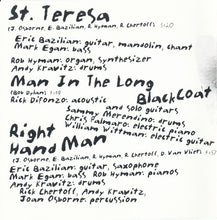 St. Teresa
(J. Osborne, E. Bazilian, R. Hyman, R. Chertoff) 5:20
Eric Bazilian: guitar, mandolin, chant
Mark Egan: bass
Rob Hyman: organ, synthesizer
Andy Kravitz: drums
Man In The Long
Black Coat
(Bob Dylan)
Rick DiFonzo: acoustic
and solo guitars
Sammy Merendino: drums
Chris Palmaro: electric piano
William Wittman: electric guitar
Right
Hand Man
(J. Osborne, E. Bazilian, R. Hyman, R. Chertoff, D. Van Vliet)
Eric Bazilian: guitar, saxophone
Mark Egan: bass Rob Hyman: pianos
Andy Kravitz: drums
Rick Chertoff, Andy Kravitz,
Joan Osborne: percussion